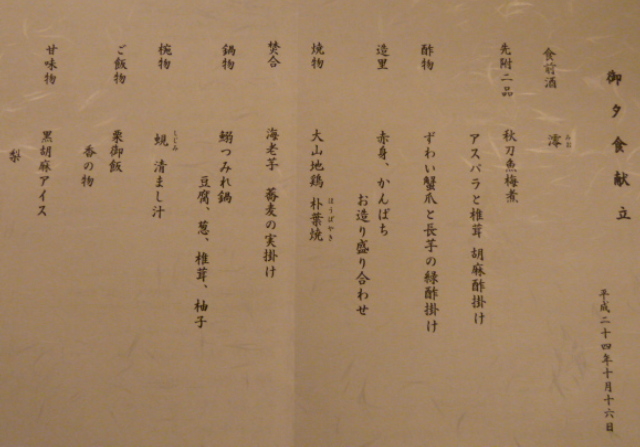 御夕食献立
平成二十四年十月十六日
食前酒 澪 みお
先附二品 秋刀魚梅煮
アスパラと椎茸 胡麻酢掛け
酢物 ずわい蟹爪と長芋の緑酢掛け
造里 赤身、かんぱち
お造り盛り合わせ
焼物 大山地鶏 朴葉焼 ほうばやき
焚合 海老芋 蕎麦の実掛け
鍋物 鰯つみれ鍋
豆腐、葱、椎茸、柚子
椀物 蜆 しじみ 清まし汁
ご飯物 栗御飯
香の物
甘味物 黒胡麻アイス
梨